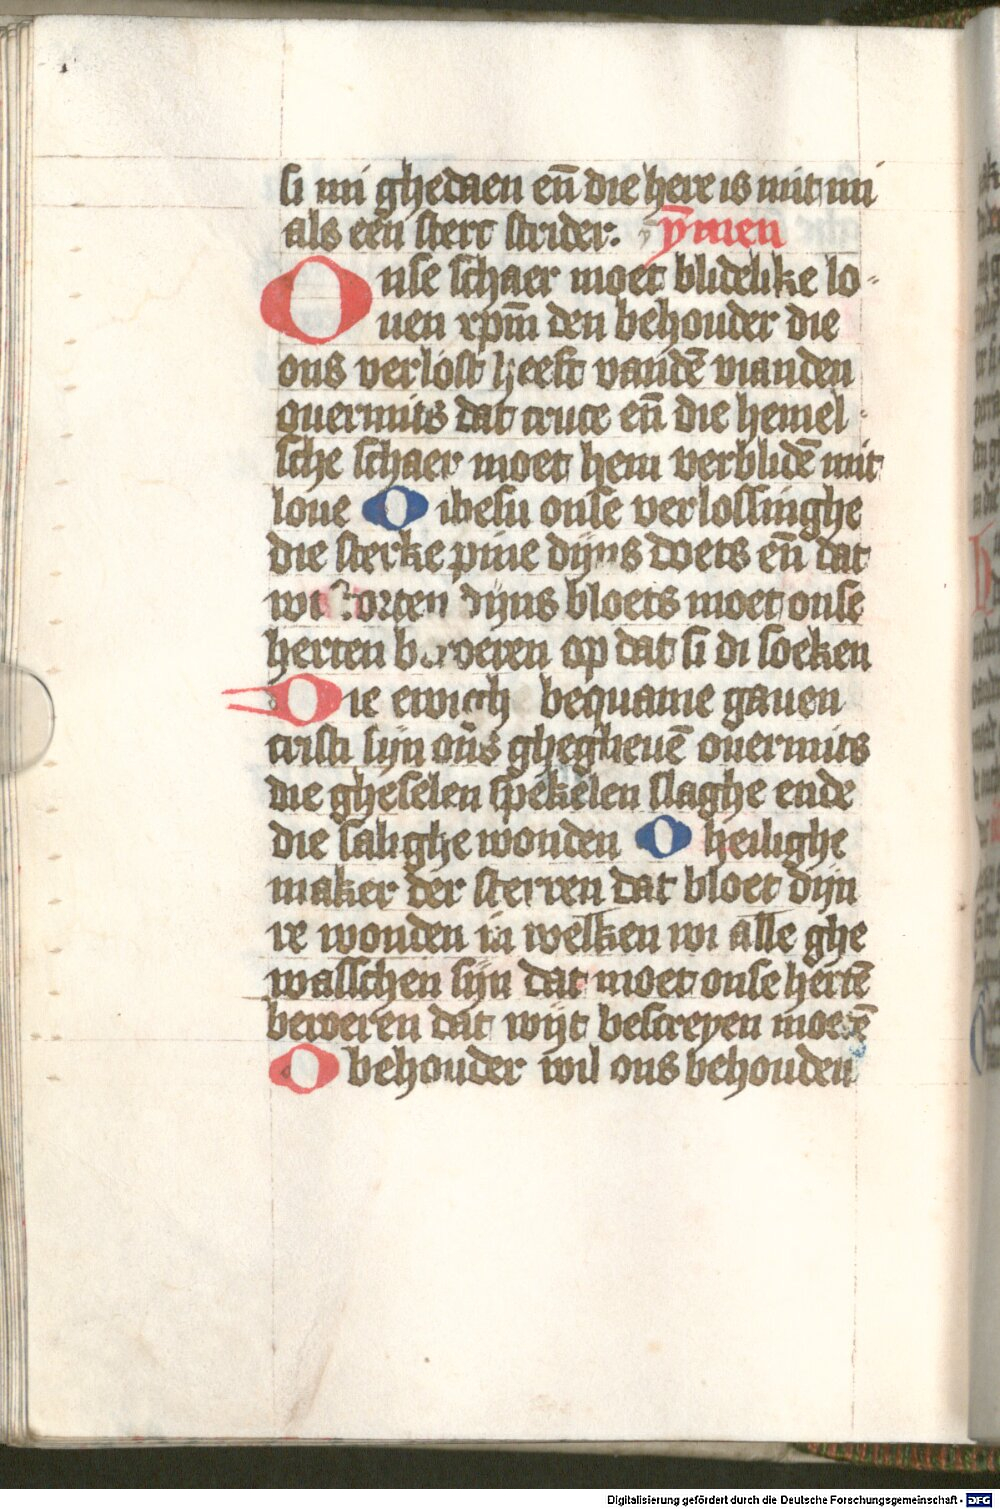 si mi ghedaen eñ die here is mit mi
als een sterc strider. ȳmen
Onse schaer moet blidelike lo-
uen xpm̄ den behouder die
ons verlost heeft vandē vianden
ouermits dat cruce eñ die hemel-
sche schaer moet hem verblidē mit
loue O ihesu onse verlossinghe
die sterke pine dijns doets eñ dat
wtstorten dijns bloets moet onse
herten beroeren op dat si di soeken
Die ewich bequame gauen
cristi sijn ons ghegheuē ouermits
die gheselen spekelen slaghe ende
die salighe wonden O heilighe
maker der sterren dat bloet dijn
re wonden in welken wi alle ghe
wasschen sijn dat moet onse hertē
beweren dat wijt bescreyen moetē
O behouder wil ons behouden
Digitalisierung gefördert durch die Deutsche Forschungsgemeinschaft - DFG